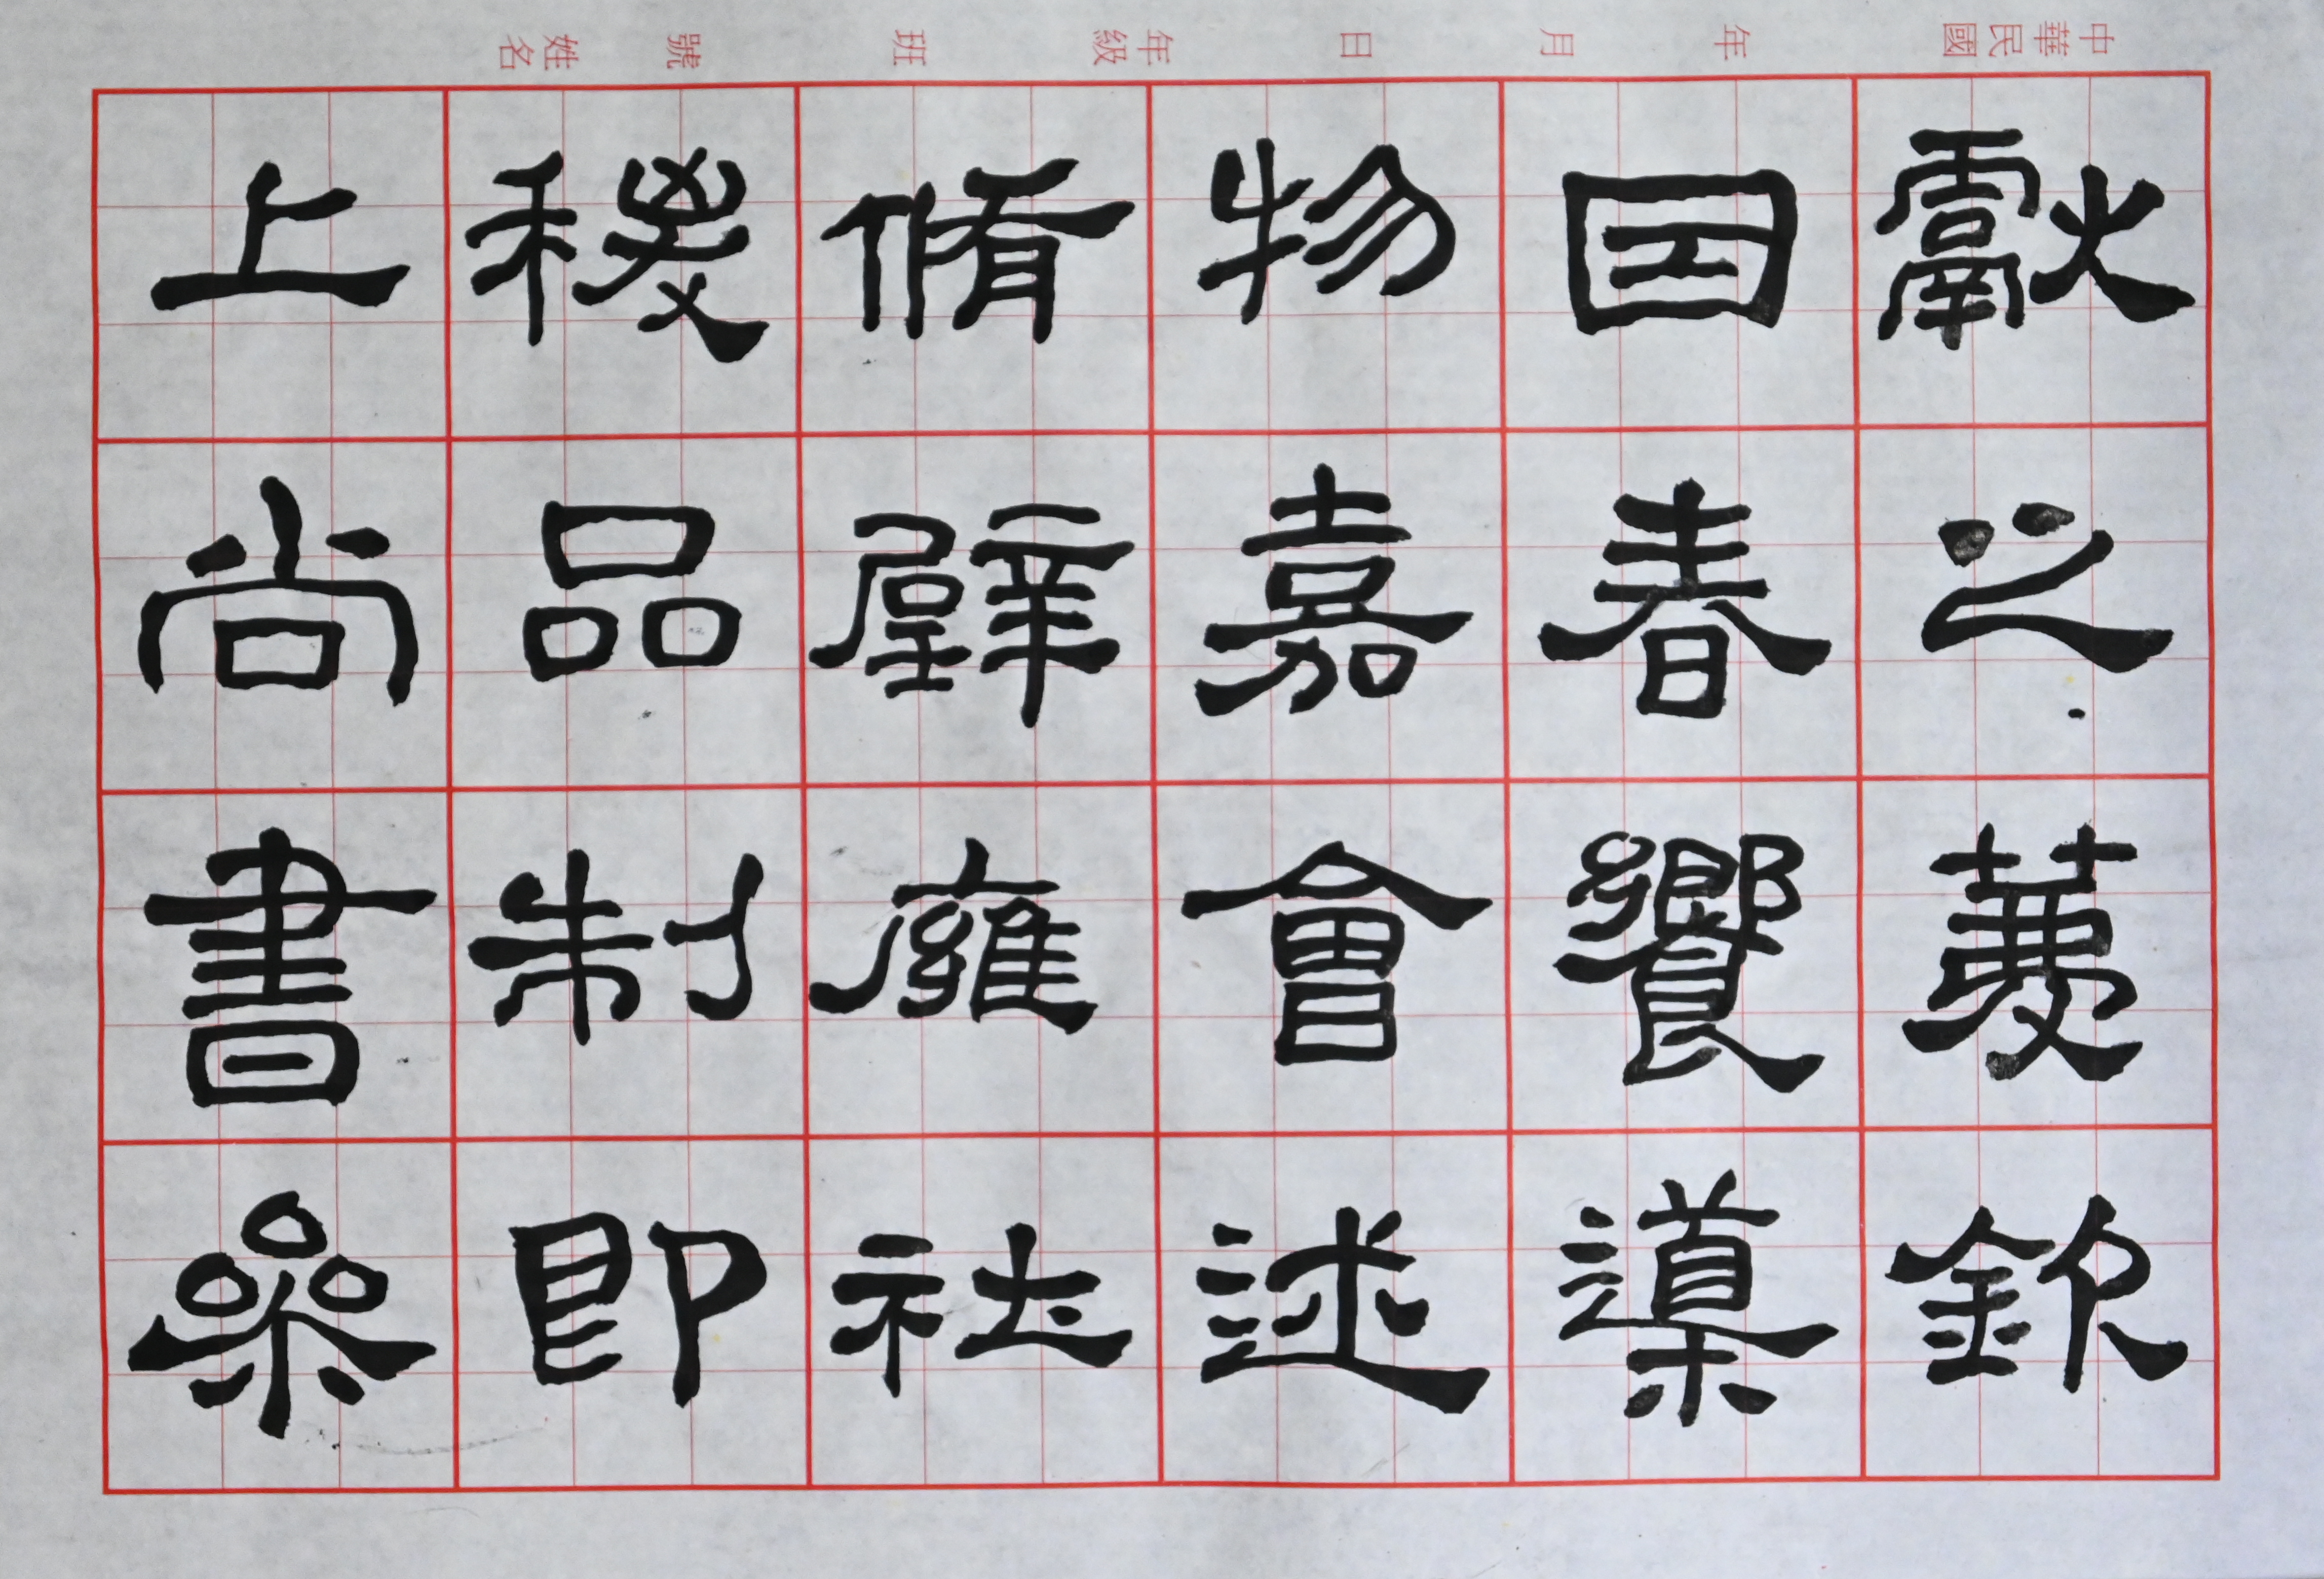 中華民國　年　月　日　年級　班　號　姓名
獻之薦欽
因春饗導
物嘉會述
脩璧雍社
稷品制即
上尚書參